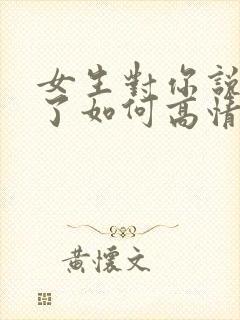 女生對你說
了如何高情
黃懷文